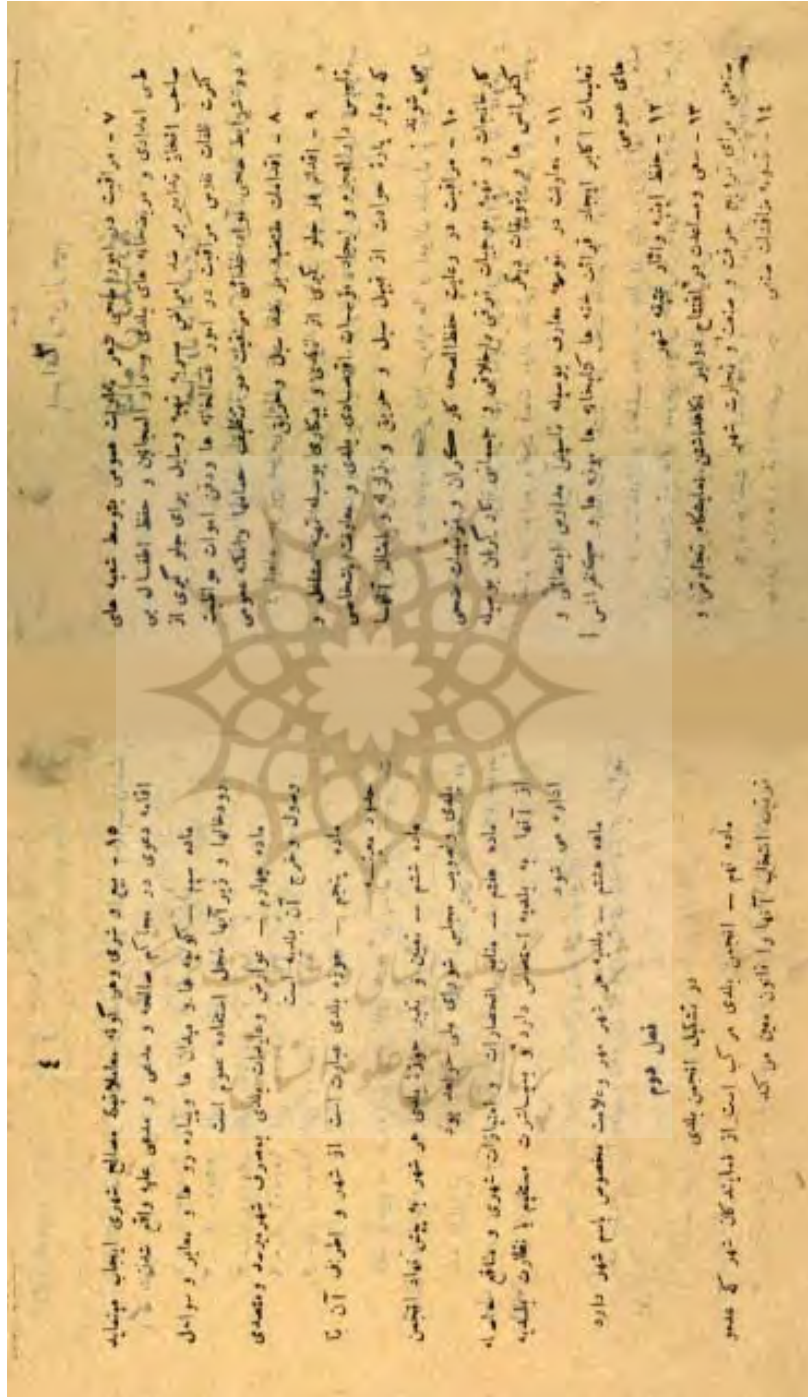 ۳
۷ - مراقبت در امور صحی شهر بمعاونت عمومی بتوسط شعبه های
طی امدادی و مریضخانه های بلدی و دار المجانین و حفظ اطفال بی
صاحب اتخاذ تدابیر بر ضد امراض مسریه تهیه وسایل برای جلو گیری از
کثرت تلفات نفوس مراقبت در امور غسالخانه ها ودفن اموات مواظبت
در شرایط صحی مواد غذائی مراقبت در تنظیف حمامها وامکنه عمومی
۸ - اقدامات مقتضیه بر ضد سیل وحریق
۹ - اقدام در جلو گیری از تکدی و بیکاری بوسیله تهیه مشاغل و
تأسیس دارالعجزه و ایجاد مؤسسات اقتصادی بلدی و معاونت باشخاصی
که دچار پارهٔ حوادث از قبیل سیل و حریق و زلزله و امثال آنها
می شوند
۱۰ - مراقبت در رعایت حفظ الصحه کار گران و ترتیبات صحی
کارخانجات و تهیه موجبات ترقی اخلاقی و جسمانی کار گران بوسیله
کنفرانس ها و تشویقات دیگر
۱۱ - معاونت در توسعه معارف بوسیله تأسیس مدارس ابتدائی و
تعلیمات اکابر ایجاد قرائت خانه ها کتابخانه ها موزه ها و کنفرانس
های عمومی
۱۲ - حفظ ابنیه وآثار عتیقه شهر
۱۳ - سعی ومساعدت در افتتاح دوایر مکاتبات نمایشگاه تجارتی و
صنعتی برای ترویج حرفت و صنعت و تجارت شهر
۱۴ - تسویه مناقشات صنفی
٤
۱۵ - بیع و شری وهر گونه معاملاتیکه مصالح شهری ایجاب مینماید
اقامه دعوی در محاکم صالحه و مدعی و مدعی علیه واقع شدن
ماده سیم – کوچه ها و میدان ها وپیاده رو ها و معابر و سواحل
رودخانها و زیر آنها محل استفاده عموم است
ماده چهارم – عوارض وعایدات بلدی بمصرف شهر میرسد ومتصدی
وصول وخرج آن بلدیه است
ماده پنجم – حوزه بلدی عبارت است از شهر و اطراف آن تا
حدود معینه
ماده ششم – تعیین و تغییر حوزهٔ بلدی هر شهر به پیش نهاد انجمن
بلدی وتصویب مجلس شورای ملی خواهد بود
ماده هفتم – منافع انحصارات و امتیازات شهری و منافع حاصله
از آنها به بلدیه اختصاص دارد و بمباشرت مستقیم یا نظارت بلدیه
اداره می شود
ماده هشتم – بلدیه هر شهر مهر وعلامت مخصوص باسم شهر دارد
فصل دوم
در تشکیل انجمن بلدی
ماده نهم – انجمن بلدی مرکب است از نمایندگان شهر که عده و
ترتیب انتخاب آنها را قانون معین می کند